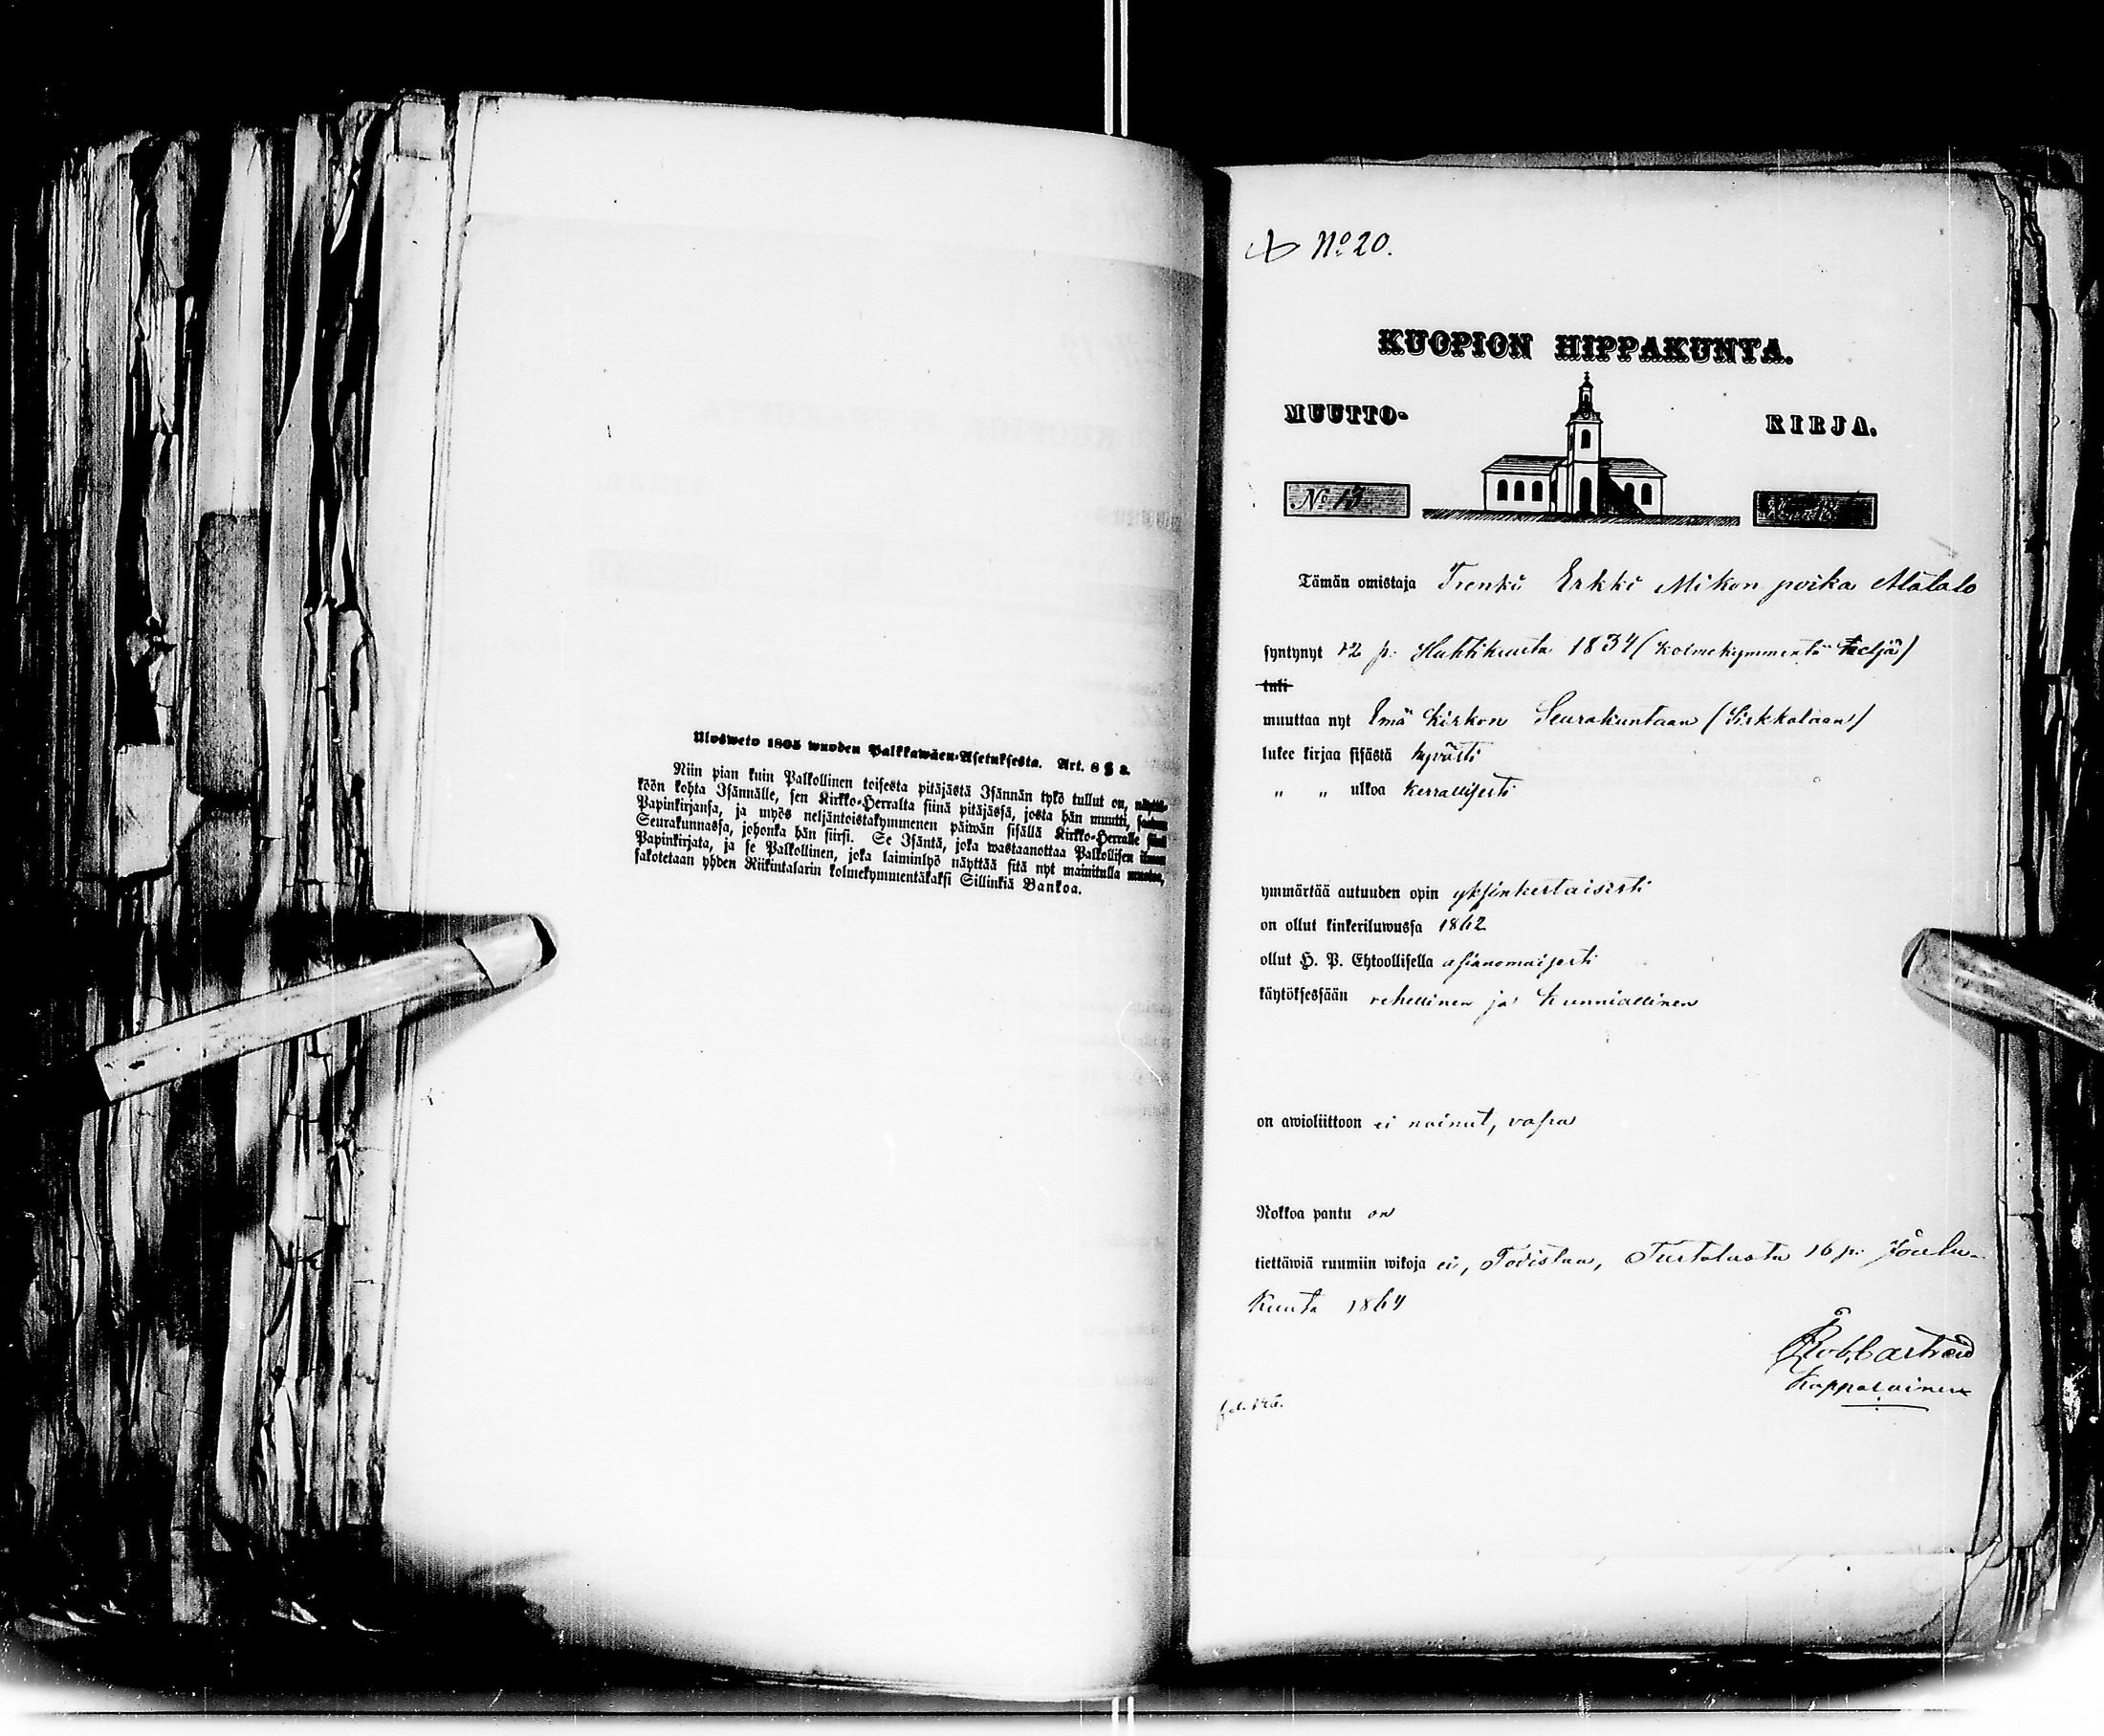 Ulosweto 1805 wuoden Palkkawäen-Asetuksesta. Art. 8 § 3.
Niin pian kuin Palkollinen toisesta pitäjästä Isännän tykö tullut on, näyttä-
köön kohta Isännälle, sen Kirkko-Herralta siinä pitäjässä, josta hän muutti,
Papinkirjansa, ja myös neljäntoistakymmenen päiwän sisällä Kirkko-Herralle
Seurakunnassa, johonka hän siirsi. Se Isäntä, joka wastaanottaa Palkollisen ilman
Papinkirjata, ja se Palkollinen, joka laiminlyö näyttää sitä nyt mainitulla muotoa,
sakotetaan yhden Riikintalarin kolmekymmentäkaksi Sillinkiä Bankoa.
No 20.
KUOPION HIPPAKUNTA.
MUUTTO- KIRJA.
No 13
Tämän omistaja Trenki Erkki Mikon poika Alatalo
syntynyt 12 p. Huhtikuuta 1834 (kolmekymmentä neljä)
tuli
muuttaa nyt Emä Kirkon Seurakuntaan (Sirkkalaan)
lukee kirjaa sisästä hyvästi
" " ulkoa kerrallisesti
ymmärtää autuuden opin yksinkertaisesti
on ollut kinkeriluwussa 1862
ollut H. P. Ehtoollisella asianomaisesti
käytöksessään rehellinen ja kunniallinen
on awioliittoon ei nainut, vapa
Rokkoa pantu on
tiettäwiä ruumiin wikoja ei, Todistaa, Turtolasta 16 p. Joulu-
kuuta 1864
Kappalainen
fol. 146.